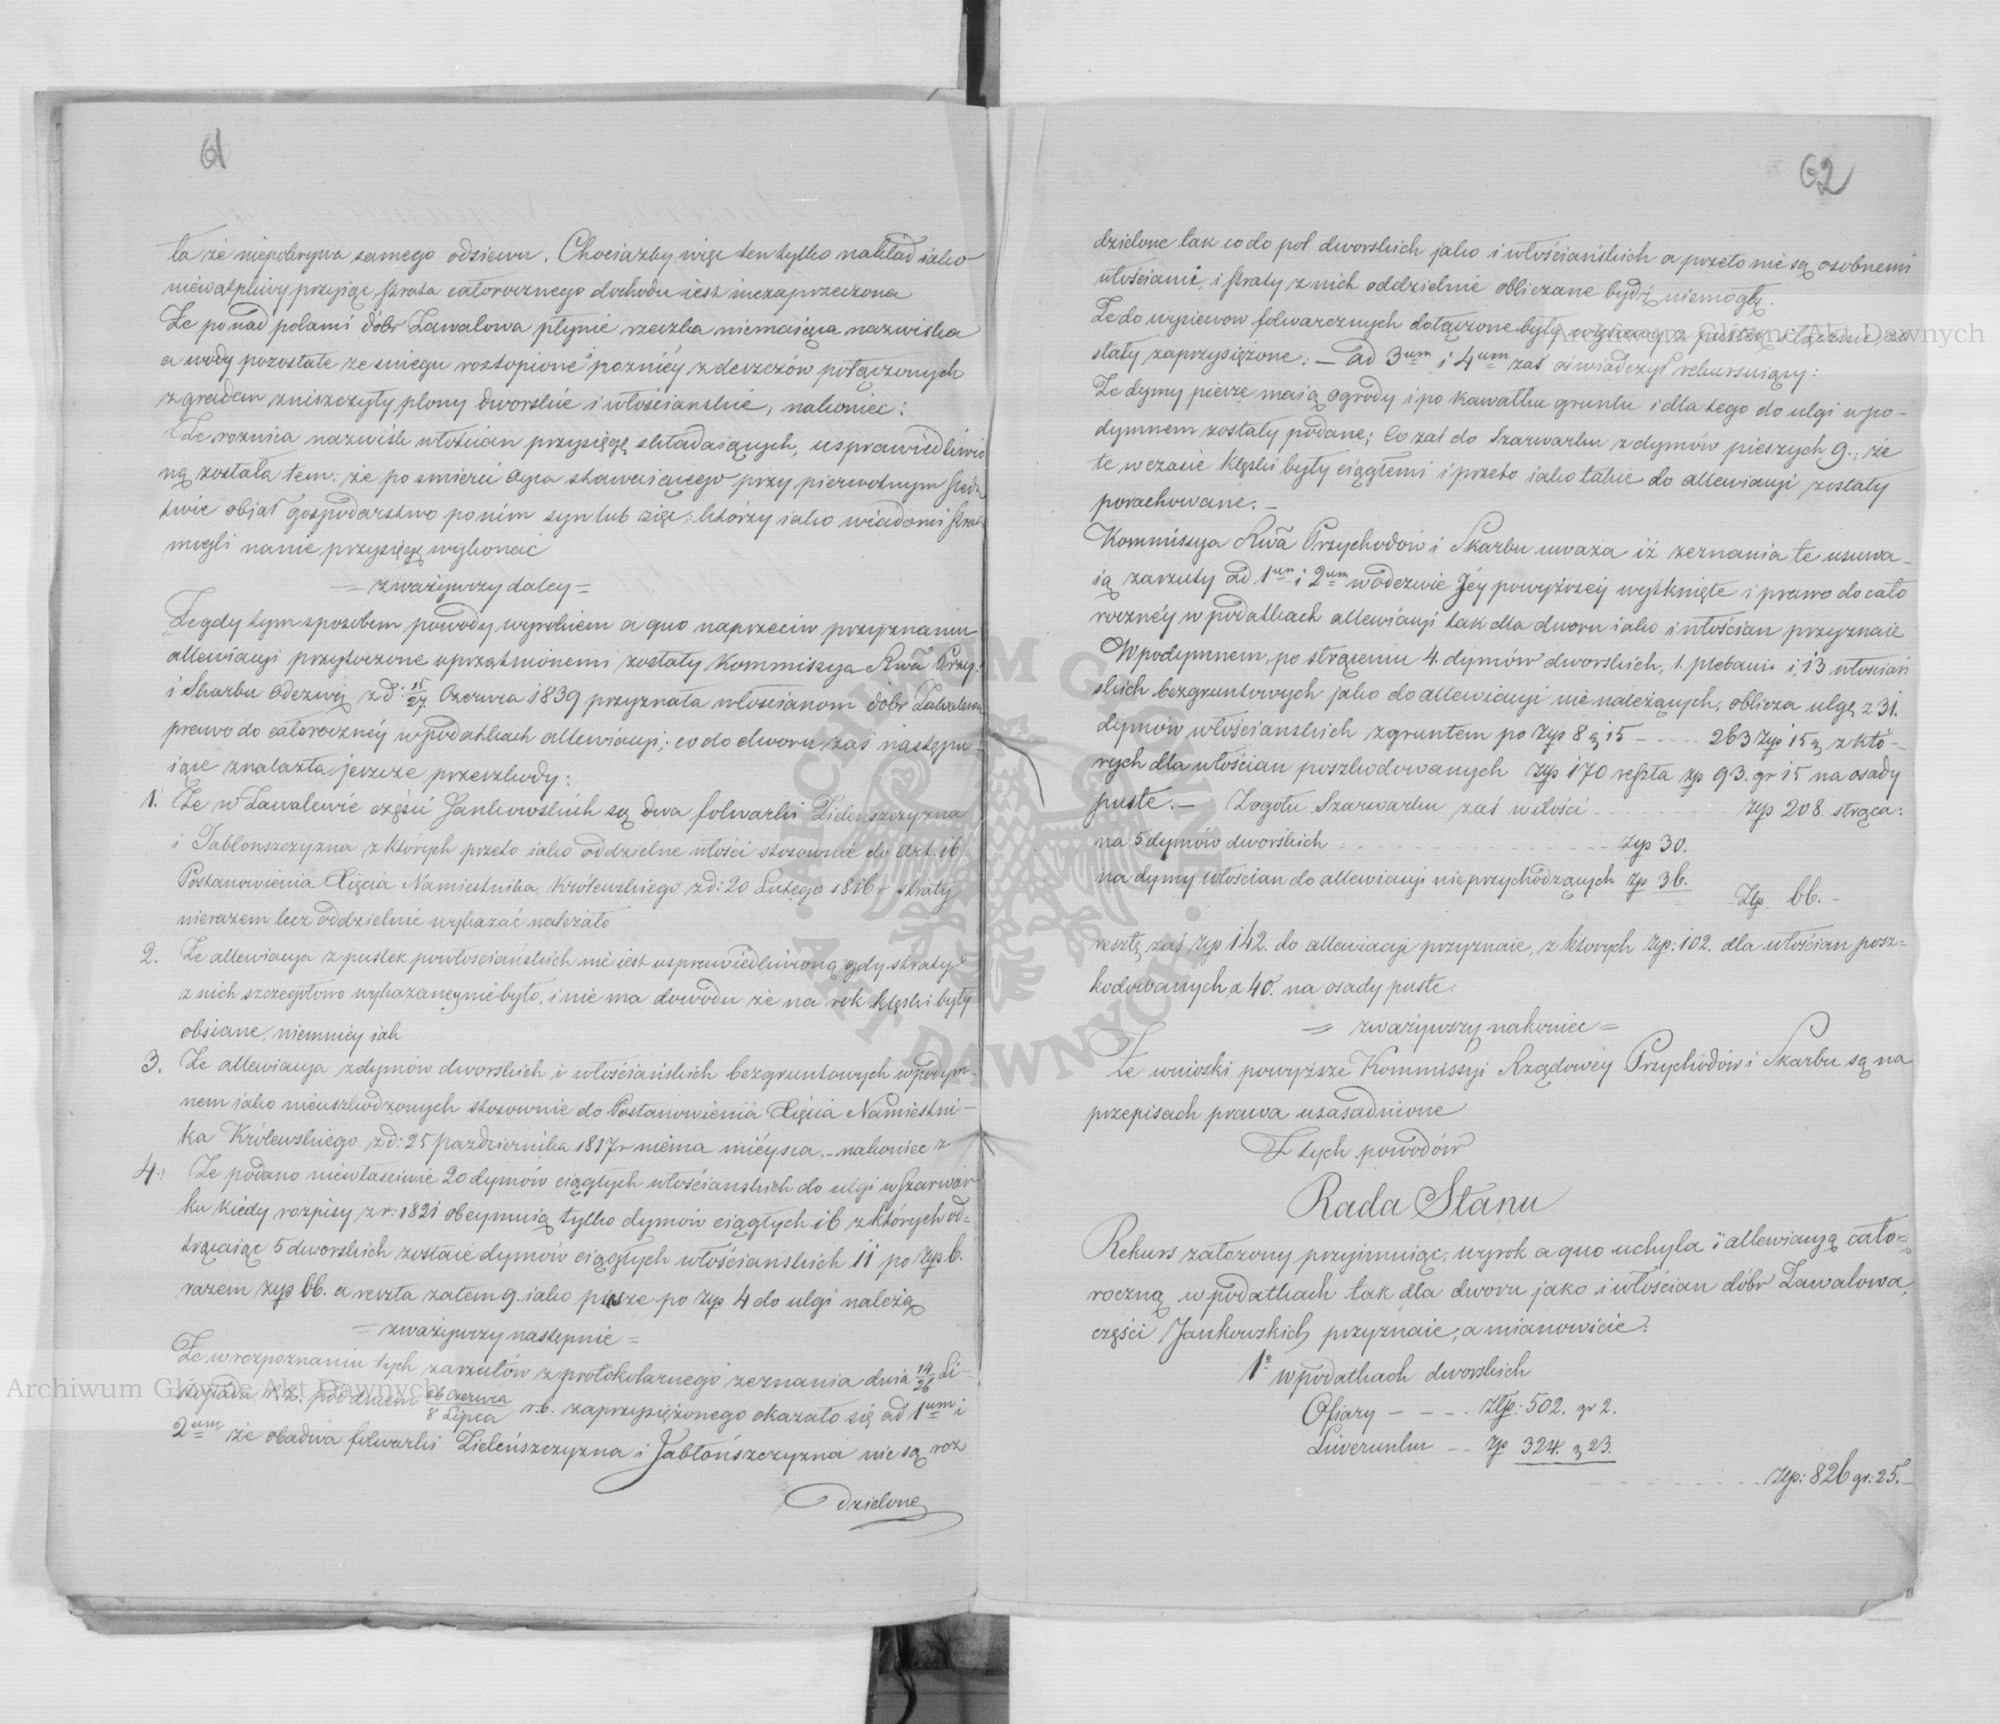 61
ła że niepokrywa samego odsiewu. Chociażby więc ten tylko nakład iako
niewątpliwy przyiąc, strata całorocznego dochodu iest niezaprzeczona
Że ponad polami dóbr Zawalowa płynie rzeczka niemaiąca nazwiska
a wody pozostałe ze sniegu roztopione i pozniéy z deszczów połączonych
z gradem zniszczyły plony dworskie i włościanskie, nakoniec:
Że roznica nazwisk włościan przysięgę składaiących, usprawiedliwio
ną została tem: że po smierci oyca stawaiącego przy pierwotnym śledz
twie objął gospodarstwo po nim syn lub zięc, którzy iako wiadomi strat
mogli nanie przysięgę wykonać
= zważywszy daley =
Że gdy tym sposobem powody wyrokiem a quo naprzeciw przyznaniu
allewiacyi przytoczone uprzątnionemi zostały Kommissya Rwã Przy:
i Skarbu Odezwą z d: 15/27 Czerwca 1839 przyznała włoscianom dóbr Zawalowa
prawo do całorocznéy w podatkach allewiacyi; co do dworu zaś następu-
iące znalazła jeszcze przeszkody:
1. Że w Zawalewie części Jankowskich są dwa folwarki Zielenszczyzna
i Jabłonszczyzna z których przeto iako oddzielne włości stosownie do Art. 16
Postanowienia Xięcia Namiestnika Królewskiego z d: 20 Lutego 1816 r straty
nierazem lecz oddzielnie wykazać należało
2. Że allewiacya z pustek powłościańskich nie iest usprawiedliwioną gdy straty
z nich szczegołowo wykazaney nie było, i nie ma dowodu że na rok klęski były
obsiane, niemniéy iak
3. Że allewiacya z dymów dworskich i włościańskich bezgruntowych w podym-
nem iako nieuszkodzonych stosownie do Postanowienia Xięcia Namiestni-
ka Królewskiego z d: 25 Pazdziernika 1817 r niema mieysca. - nakoniec z
4. Że podano niewłasciwie 20 dymów ciągłych włościanskich do ulgi w Szarwar
ku kiedy rozpisy z r: 1821 obeymuią tylko dymów ciągłych 16 z których od=
trącaiąc 5 dworskich zostaie dymów ciągłych włościanskich 11 po Złp 6.
razem Złp 66. a reszta zatem 9. iako piesze po Złp 4 do ulgi należą
= zważywszy następnie =
Że w rozpoznaniu tych zarzutów z protokolarnego zeznania dnia 14/26 Li-
stopada r.z. pod dniem 26 Czerwca/8 Lipca r.b. zaprzysiężonego okazało się ad 1um i
2um że obadwa folwarki Zieleńszczyzna i Jabłońszczyzna nie są roz
dzielone
62
dzielone tak co do pol dworskich jako i włościańskich a przeto nie są osobnemi
włościami, i straty z nich oddzielnie obliczane bydź niemogły.
Że do wysiewow folwarcznych dołączone były wysiewy z pustek i łącznie zo
stały zaprzysiężone: - ad 3um i 4um zaś oświadczył rekursuiący:
Że dymy piesze maią ogrody i po kawałku gruntu i dla tego do ulgi w po-
dymnem zostały podane; Co zaś do Szarwarku z dymów pieszych 9., że
te w czasie klęski były ciągłemi i przeto iako takie do allewiacyi zostały
porachowane. -
Kommissya Rwã Przychodów i Skarbu uważa iż zeznania te usuwa-
ią zarzuty ad 1um i 2um w odezwie Jéy powyższéy wytknięte i prawo do cało
rocznéy w podatkach allewiacyi tak dla dworu iako i włościan przyznaie
W podymnem, po strąceniu 4. dymów dworskich, 1. plebanii i 13 włościań
skich bezgruntowych jako do allewiacyi nie należących, oblicza ulgę z 31.
dymów włościanskich z gruntem po Złp 8 g 15 - - - 263 Złp 15 g, z któ-
rych dla włościan poszkodowanych Złp 170 reszta złp 93. gr 15 na osady
puste. - Z ogołu Szarwarku zaś w ilości - - - Złp 208. strąca:
na 5 dymów dworskich - - - Złp 30.
na dymy włościan do allewiacyi nie przychodzących Złp 36.
Złp. 66. -
resztę zaś Złp 142. do allewiacyi przyznaie, z ktorych Złp: 102. dla włościan posz=
kodowanych a 40. na osady puste.
= zważywszy nakoniec =
Że wnioski powyższe Kommissyi Rządowéy Przychodów i Skarbu są na
przepisach prawa uzasadnione
Z tych powodów
Rada Stanu
Rekurs założony przyimuiąc, wyrok a quo uchyla i allewiacyą cało=
roczną w podatkach tak dla dworu jako i włościan dóbr Zawalowa,
części Jankowskich przyznaie, a mianowicie:
1e w podatkach dworskich
Ofiary - - - Złp: 502. gr 2.
Liwerunku - - Złp 324. g 23.
Złp: 826 gr: 25. -
ARCHIWUM GŁÓWNE AKT DAWNYCH
Archiwum Główne Akt Dawnych
Archiwum Główne Akt Dawnych